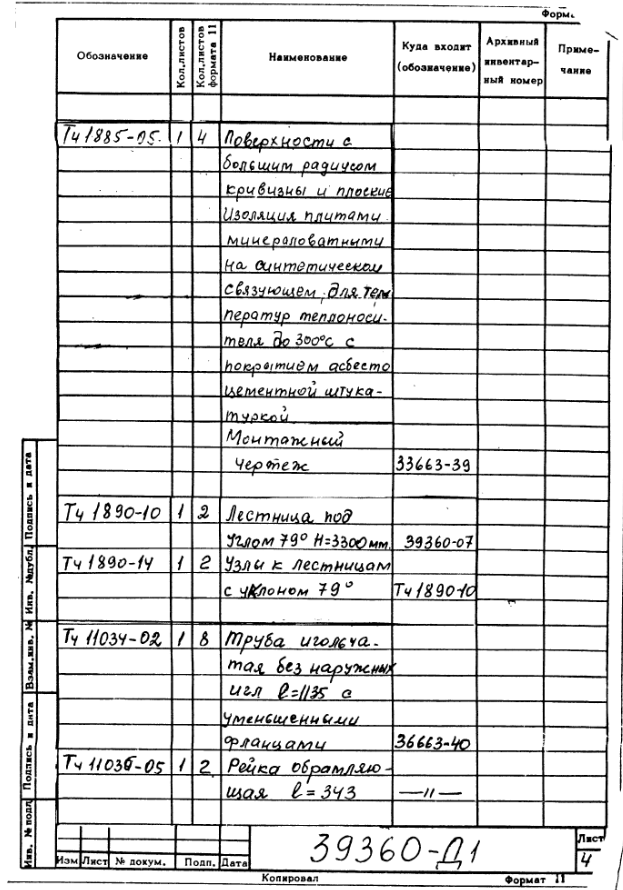 Обозначение Кол.листов Кол.листов формата 11 Наименование Куда входит (обозначение) Архивный инвентарный номер Примечание
Тч 1885-05. 1 4 Поверхности с
большим радиусом
кривизны и плоские
Изоляция плитами
минераловатными
на синтетическом
связующем, для тем
ператур теплоноси-
теля до 300°с с
покрытием асбесто
цементной штука-
туркой
Монтажный
чертеж 33663-39
Тч 1890-10 1 2 Лестница под
углом 79° Н=3300мм. 39360-07
Тч 1890-14 1 2 Узлы к лестницам
с уклоном 79° Тч1890-10
Тч 11034-02 1 8 Труба игольча-
тая без наружных
игл ℓ=1135 с
уменьшенными
фланцами 36663-40
1 2 Рейка обрамляю-
щая ℓ=343 —II—
Инв. № подл. Подпись и дата Взам.инв. № Инв. №дубл. Подпись и дата
Изм Лист № докум. Подп. Дата
39360-Д1
Лист
4
Копировал Формат 11